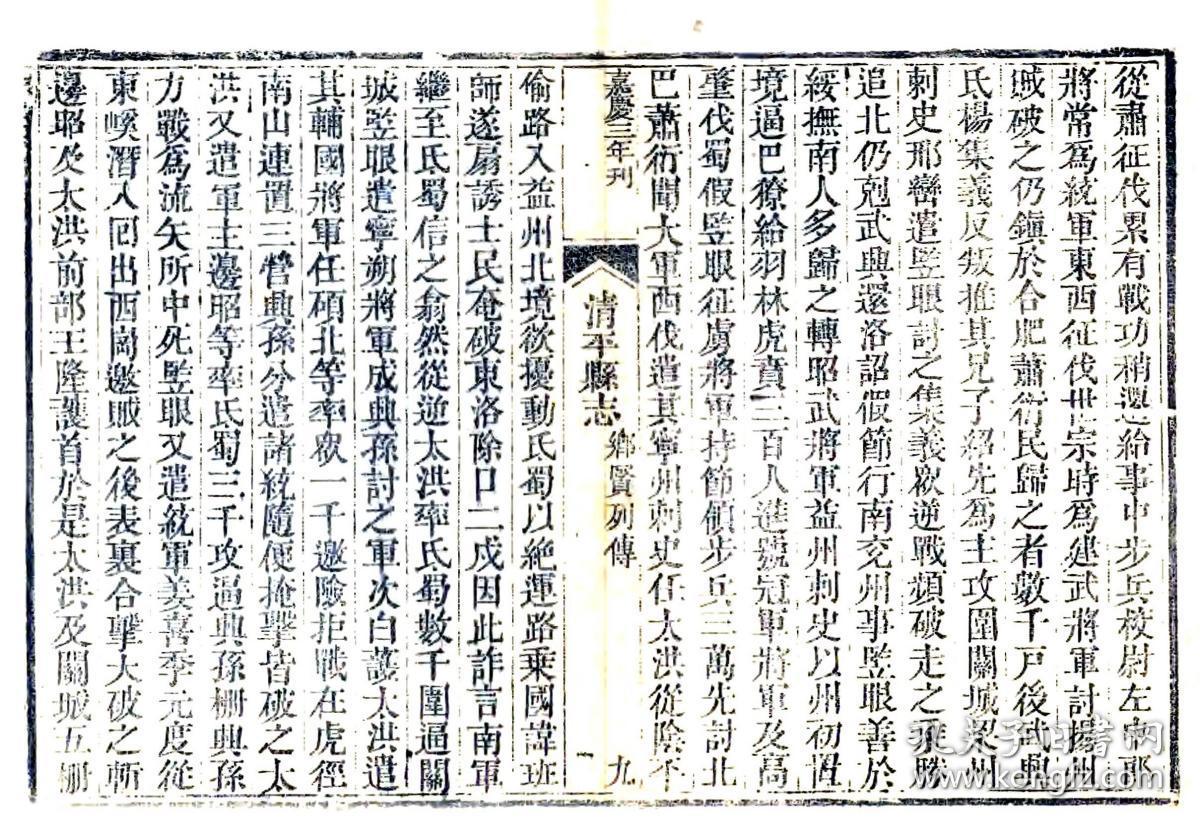 從肅征伐累有戰功稍遷給事中步兵校尉左中郎
將常爲統軍東西征伐世宗時爲建武將軍討揚州
賊破之仍鎮於合肥蕭衍民歸之者數千戶後武興
氐楊集義反叛推其兄子紹先爲主攻圍關城梁州
刺史邢巒遣豎眼討之集義衆逆戰頻破走之乘勝
追北仍剋武興還洛詔假節行南兖州事豎眼善於
綏撫南人多歸之轉昭武將軍益州刺史以州初置
境逼巴獠給羽林虎賁三百人進號冠軍將軍及高
肇伐蜀假豎眼征虜將軍持節領步兵三萬先討北
巴蕭衍聞大軍西伐遣其寧州刺史任太洪從陰平
嘉慶三年刊
清平縣志 鄉賢列傳 九
偷路入益州北境欲擾動氐蜀以絶運路乘國諱班
師遂扇誘士民奄破東洛除口二戍因此詐言南軍
繼至氐蜀信之翕然從逆太洪率氐蜀數千圍逼關
城豎眼遣寧朔將軍成興孫討之軍次白護太洪遣
其輔國將軍任碩北等率衆一千邀險拒戰在虎徑
南山連置三營興孫分遣諸統隨便掩擊皆破之太
洪又遣軍主邊昭等率氐蜀三千攻逼興孫柵興孫
力戰爲流矢所中死豎眼又遣統軍姜喜季元度從
東嶔潛入回出西崗邀賊之後表裏合擊大破之斬
邊昭及太洪前部王隆護首於是太洪及關城五柵
孔夫子旧书网
www.kongfz.com